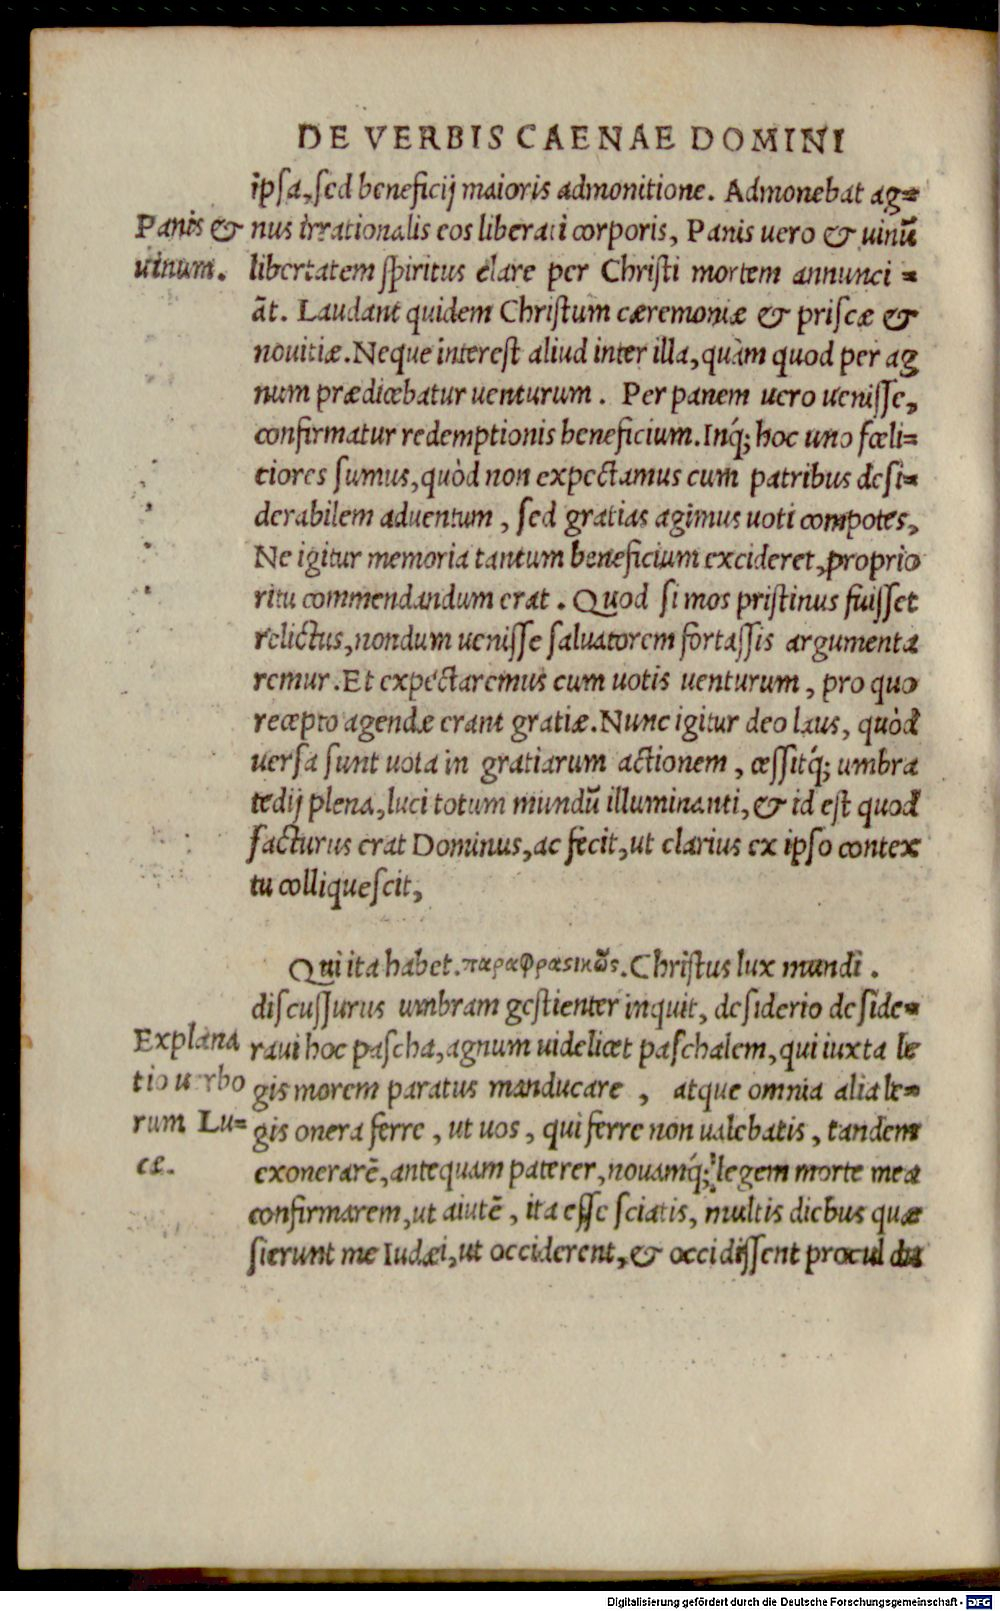 DE VERBIS CAENAE DOMINI
ipsa, sed beneficij maioris admonitione. Admonebat ag=
Panis &
uinum.
nus irrationalis eos liberati corporis, Panis uero & uinū
libertatem spiritus clare per Christi mortem annunci =
āt. Laudant quidem Christum cæremoniæ & priscæ &
nouitiæ. Neque interest aliud inter illa, quàm quod per ag
num prædicebatur uenturum. Per panem uero uenisse,
confirmatur redemptionis beneficium. Inq́; hoc uno fœli=
ciores sumus, quòd non expectamus cum patribus desi=
derabilem aduentum, sed gratias agimus uoti compotes,
Ne igitur memoria tantum beneficium excideret, proprio
ritu commendandum erat. Quod si mos pristinus fuisset
relictus, nondum uenisse saluatorem fortassis argumenta
remur. Et expectaremus cum uotis uenturum, pro quo
recepto agendæ erant gratiæ. Nunc igitur deo laus, quòd
uersa sunt uota in gratiarum actionem, cessitq́; umbra
tedij plena, luci totum mundū illuminanti, & id est quod
facturus erat Dominus, ac fecit, ut clarius ex ipso contex
tu colliquescit,
Qui ita habet. παραφρασικῶς. Christus lux mundi.
discussurus umbram gestienter inquit, desiderio deside=
Explana
tio uerbo
rum Lu=
cæ.
raui hoc pascha, agnum uidelicet paschalem, qui iuxta le
gis morem paratus manducare, atque omnia alia le=
gis onera ferre, ut uos, qui ferre non ualebatis, tandem
exonerarē, antequam paterer, nouamq́; legem morte mea
confirmarem, ut aiutē, ita esse sciatis, multis diebus quæ
sierunt me Iudæi, ut occiderent, & occidissent procul du
Digitalisierung gefördert durch die Deutsche Forschungsgemeinschaft - DFG